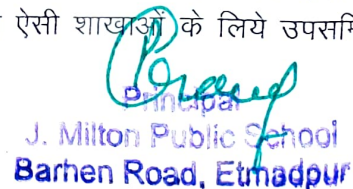 ऐसी शाखाओं के लिये उपसमि
Principal
J. Milton Public School
Barhen Road, Etmadpur